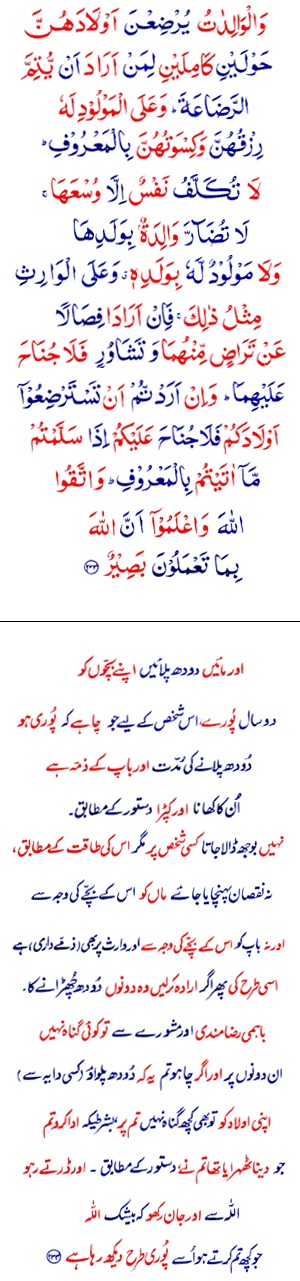 وَالْوَالِدٰتُ يُرْضِعْنَ اَوْلَادَهُنَّ
حَوْلَيْنِ كَامِلَيْنِ لِمَنْ اَرَادَ اَنْ يُّتِمَّ
الرَّضَاعَةَ ؕ وَعَلَى الْمَوْلُوْدِ لَهٗ
رِزْقُهُنَّ وَكِسْوَتُهُنَّ بِالْمَعْرُوْفِ ؕ
لَا تُكَلَّفُ نَفْسٌ اِلَّا وُسْعَهَا ۚ
لَا تُضَآرَّ وَالِدَةٌۢ بِوَلَدِهَا
وَلَا مَوْلُوْدٌ لَّهٗ بِوَلَدِهٖ ۗ وَعَلَى الْوَارِثِ
مِثْلُ ذٰلِكَ ۚ فَاِنْ اَرَادَا فِصَالًا
عَنْ تَرَاضٍ مِّنْهُمَا وَتَشَاوُرٍ فَلَا جُنَاحَ
عَلَيْهِمَا ؕ وَاِنْ اَرَدْتُّمْ اَنْ تَسْتَرْضِعُوْۤا
اَوْلَادَكُمْ فَلَا جُنَاحَ عَلَيْكُمْ اِذَا سَلَّمْتُمْ
مَّاۤ اٰتَيْتُمْ بِالْمَعْرُوْفِ ؕ وَاتَّقُوا
اللّٰهَ وَاعْلَمُوْۤا اَنَّ اللّٰهَ
بِمَا تَعْمَلُوْنَ بَصِيْرٌ ﴿۲۳۳﴾
اور مائیں دودھ پلائیں اپنے بچّوں کو
دو سال پُورے، اس شخص کے لیے جو چاہے کہ پُوری ہو
دُودھ پلانے کی مُدّت اور باپ کے ذمّہ ہے
اُن کا کھانا اور کپڑا دستور کے مطابق۔
نہیں بوجھ ڈالا جاتا کسی شخص پر مگر اس کی طاقت کے مطابق،
نہ نقصان پہنچایا جائے ماں کو اس کے بچّے کی وجہ سے
اور نہ باپ کو اس کے بچّے کی وجہ سے اور وارث پر بھی (ذمّے داری) ہے
اسی طرح کی پھر اگر ارادہ کر لیں وہ دونوں دُودھ چھُڑانے کا،
باہمی رضامندی اور مشورے سے تو کوئی گناہ نہیں
ان دونوں پر اور اگر چاہو تم یہ کہ دُودھ پلواؤ (کسی دایہ سے)
اپنی اولاد کو تو بھی کچھ گناہ نہیں تم پر، بشرطیکہ ادا کرو تم
جو دینا ٹھہرایا تھا تم نے دستور کے مطابق ۔ اور ڈرتے رہو
اللہ سے اور جان رکھو کہ بیشک اللہ
جو کچھ تم کرتے ہو اُسے پُوری طرح دیکھ رہا ہے ﴿۲۳۳﴾